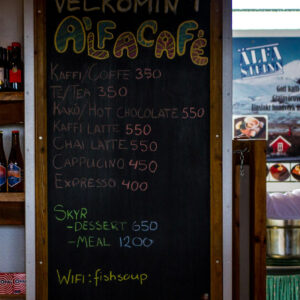 VELKOMIN Í
ÁLFACAFÉ
KAFFI/COFFE 350
TE/TEA 350
KAKÓ/HOT CHOCOLATE 550
KAFFI LATTE 550
CHAI LATTE 550
CAPPUCINO 450
EXPRESSO 400
SKYR
-DESSERT 650
-MEAL 1200
WIFI: fishsoup